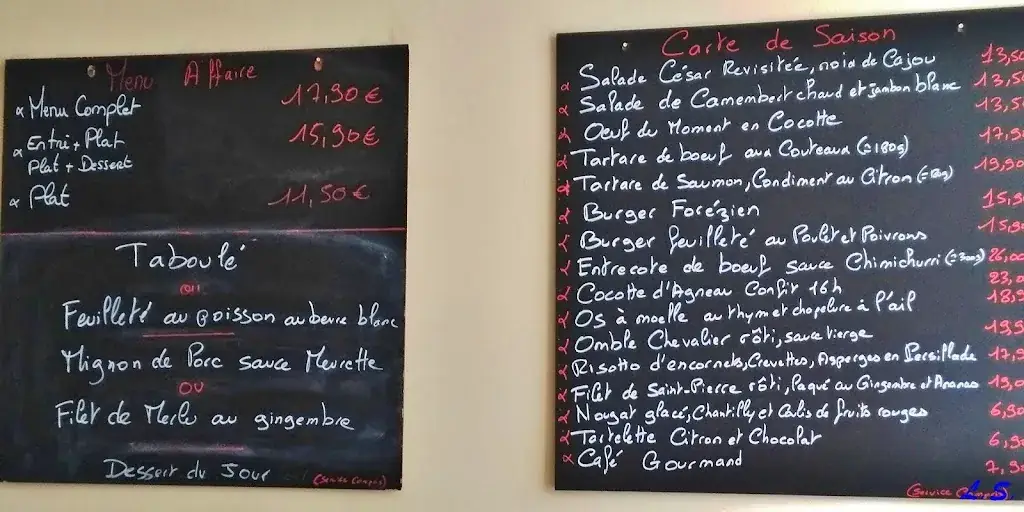 Menu Affaire
Menu Complet 17,90 €
Entrée + Plat 15,90 €
Plat + Dessert
Plat 11,50 €
Taboulé
ou
Feuilleté au poisson au beurre blanc
Mignon de Porc sauce Meurette
OU
Filet de Merlu au gingembre
Dessert du Jour
(Service Compris)
Carte de Saison
Salade César Revisitée, noix de Cajou 13,50
Salade de Camembert chaud et jambon blanc 13,5
Oeuf du Moment en Cocotte 13,5
Tartare de boeuf aux Couteaux (≈180g) 17,9
Tartare de Saumon, Condiment au Citron 19,90
Burger Forézien 15,9
Burger feuilleté au Poulet et Poivrons 15,9
Entrecote de boeuf sauce Chimichurri (≈300g) 26,00
Cocotte d'Agneau Confit 16h 23,0
Os à moelle au thym et chapelure à l'ail 18,9
Omble Chevalier rôti, sauce vierge 19,9
Risotto d'encornets, Crevettes, Asperges en Persillade 17,9
Filet de Saint-Pierre rôti, laqué au Gingembre et Ananas 19,0
Nougat glacé, Chantilly et Coulis de fruits rouges 6,90
Tartelette Citron et Chocolat 6,9
Café Gourmand 7,9
(Service Compris)